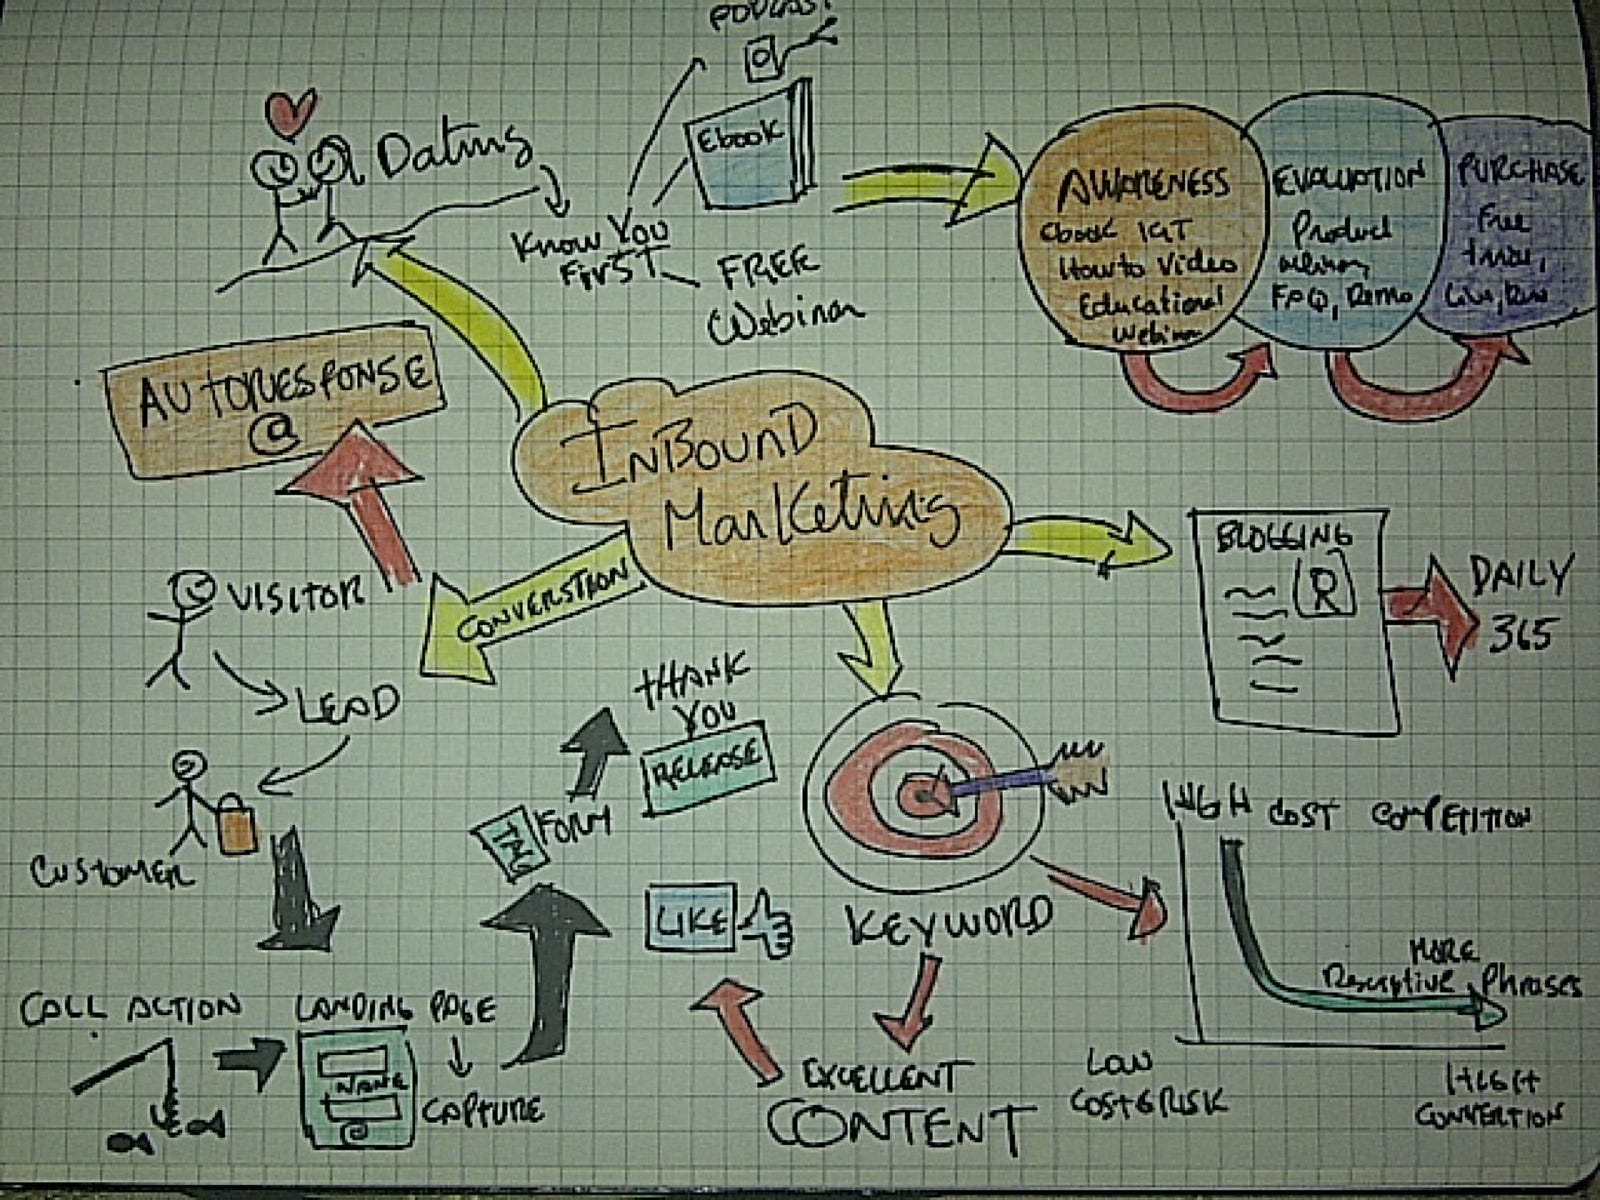 PODCAST
Dating
Ebook
Know You
First
FREE
Webinar
AWARENESS
Ebook
How to Video
Educational
Webinar
EVALUATION
Product
Webinar,
FAQ, Demo
PURCHASE
Free
AUTORESPONSE
@
INBOUND
Marketing
CONVERSTION
VISITOR
LEAD
CUSTOMER
BLOGGING
R
DAILY
365
THANK
YOU
RELEASE
FORM
LIKE
KEYWORD
EXCELLENT
CONTENT
HIGH COST COMPETITION
MORE
Descriptive Phrases
LOW
COST & RISK
HIGH
CONVERTION
CALL ACTION
LANDING PAGE
NAME
@
CAPTURE